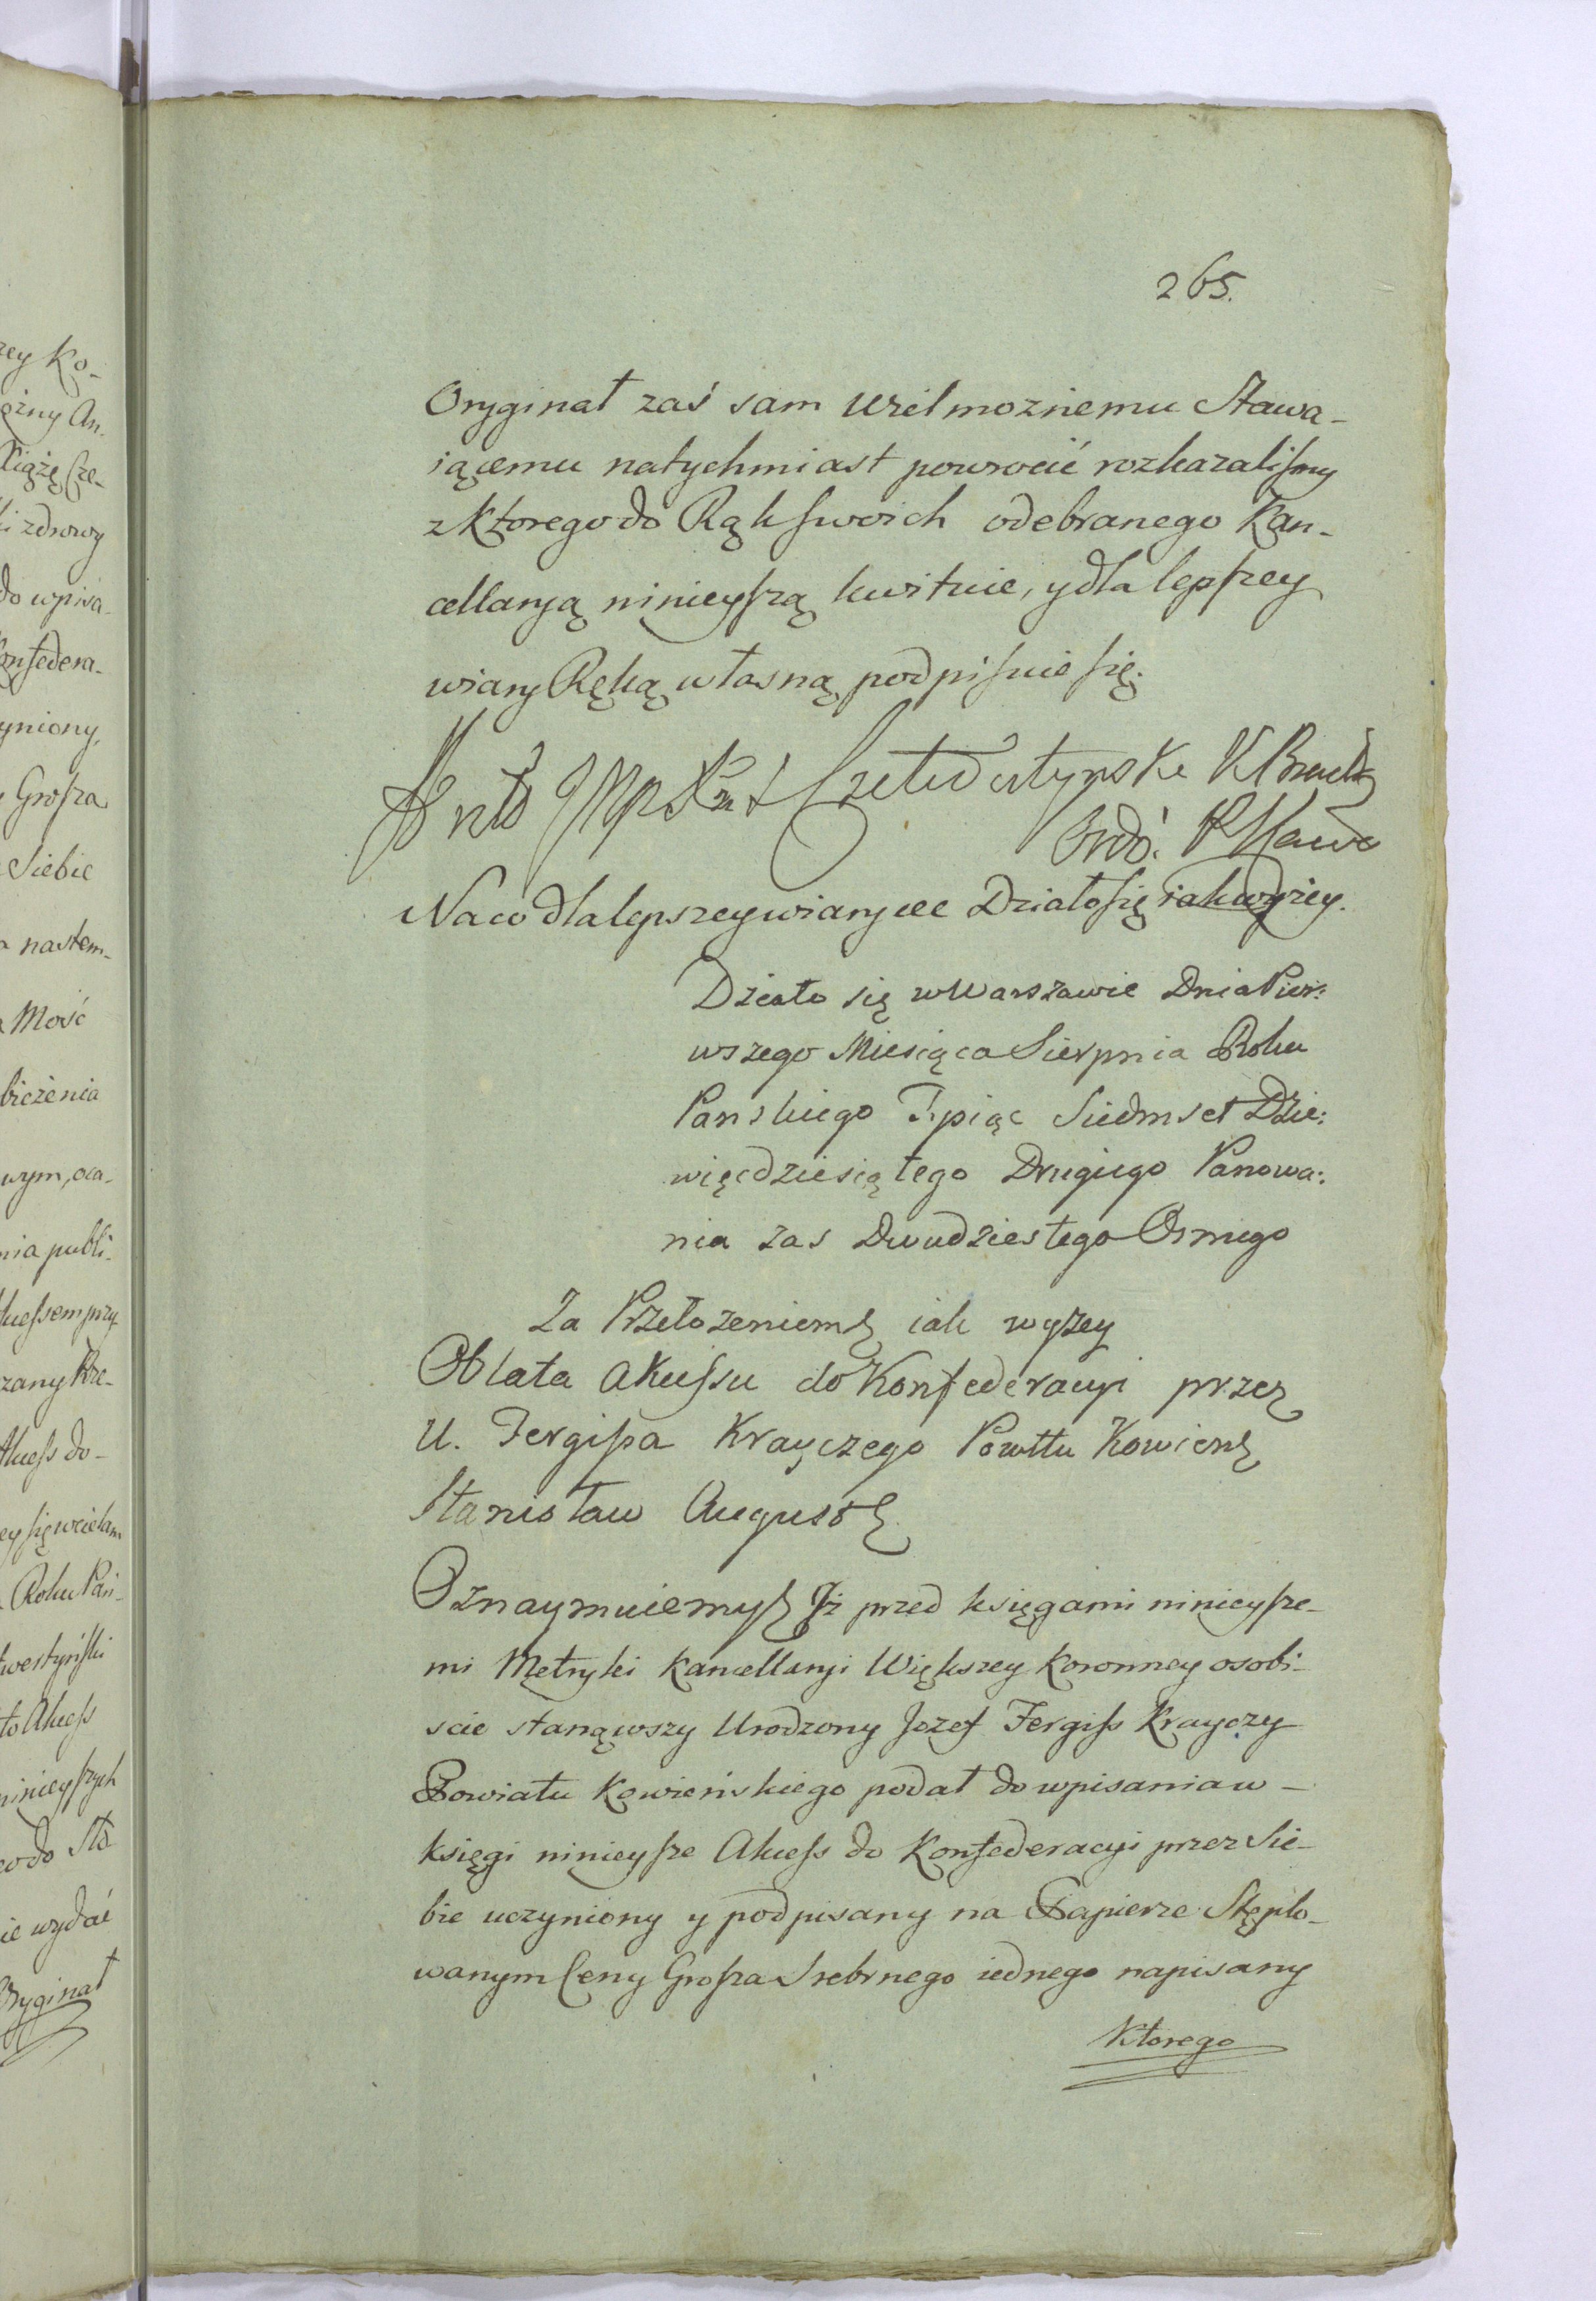 265.
Oryginał zaś sam Wielmozniemu Stawa-
iącemu natychmiast powrocić rozkazalismy
z Ktorego do Rąk swoich odebranego Kan-
cellaryą ninieyszą kwituie, y dla lepszey
wiary Ręką własną podpisuie się.
Czetwertynski
Na co dla lepszey wiary etc Działo się iak wyżey.
Działo się w Warszawie Dnia Pier:
wszego Miesiąca Sierpnia Roku
Panskiego Tysiąc Siedmset Dzie:
więcdziesiątego Drugiego Panowa:
nia zas Dwudziestego Osmego
Za Przełozeniem iak wyzey
Oblata Akcessu do Konfederacyi przez
U. Fergissa Krayczego Powttu Kowien
Stanisław August
Oznaymuiemy Iż przed księgami ninieysze-
mi Metryki Kancellaryi Większey Koronney osobi-
scie stanąwszy Urodzony Jozef Fergiss Krayczy
Powiatu Kowieńskiego podał do wpisania w-
księgi ninieysze Akcess do Konfederacyi przez Sie-
bie uczyniony y podpisany na Papierze Stęplo-
wanym Ceny Grosza Srebrnego iednego napisany
Ktorego
zey Ko-
Xiążę Cze-
i zdrowy
do wpisa-
Konfedera-
yniony,
Grosza
Siebie
nastem-
Mość
wym, oca-
nia publi-
kcessem przy
Akcess do-
ey się wcielam
Roku Pań-
twertyński
to Akcess
ninieyszych
ie wydać
Oryginał